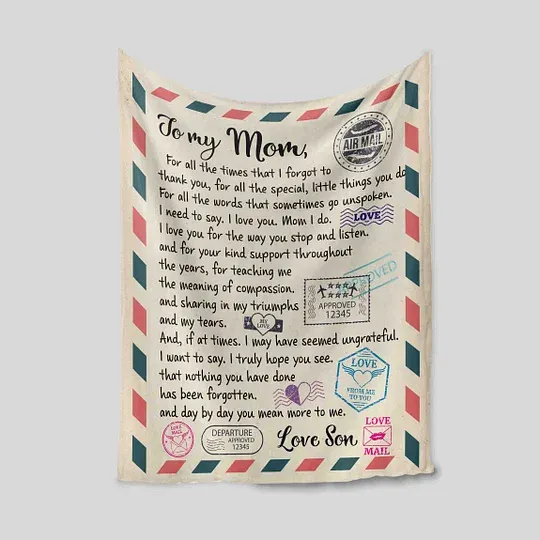 To my Mom,
AIR MAIL
For all the times that I forgot to
thank you, for all the special, little things you do
For all the words that sometimes go unspoken.
I need to say. I love you. Mom I do.
LOVE
I love you for the way you stop and listen.
and for your kind support throughout
the years, for teaching me
APPROVED
the meaning of compassion.
and sharing in my triumphs
APPROVED
12345
and my tears.
MY
LOVE
And, if at times. I may have seemed ungrateful.
I want to say. I truly hope you see.
LOVE
FROM ME
TO YOU
that nothing you have done
has been forgotten.
and day by day you mean more to me.
LOVE
MAIL
DEPARTURE
APPROVED
12345
Love Son
LOVE
MAIL